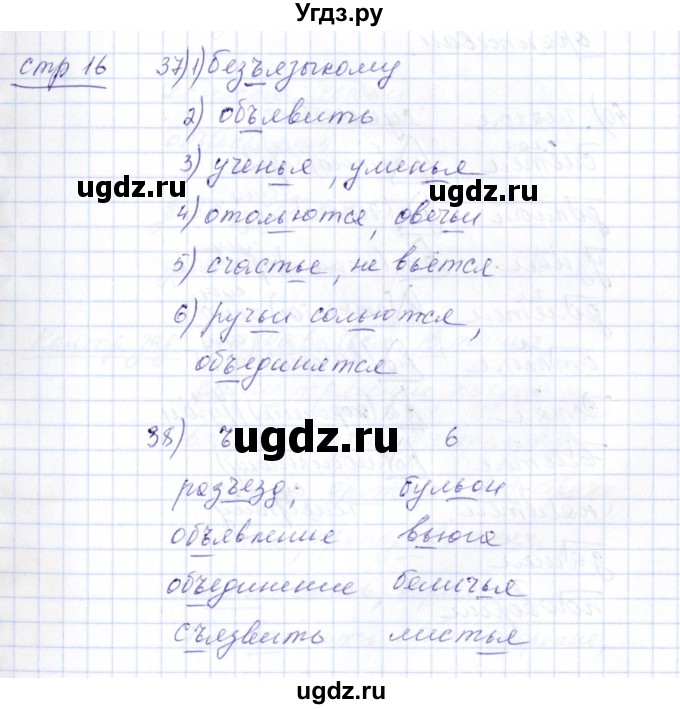 Угдз.ру
стр 16 37) 1) безъязыкому
2) объявить
3) ученья, уменья
ugdz.ru ugdz.ru
4) отольются, овечьи
5) счастье, не вьётся
6) ручьи сольются,
объединятся
38) ъ ugdz.ru ь
разъезд; бульон
объявление вьюга
объединение беличья
съязвить листья
ugdz.ru